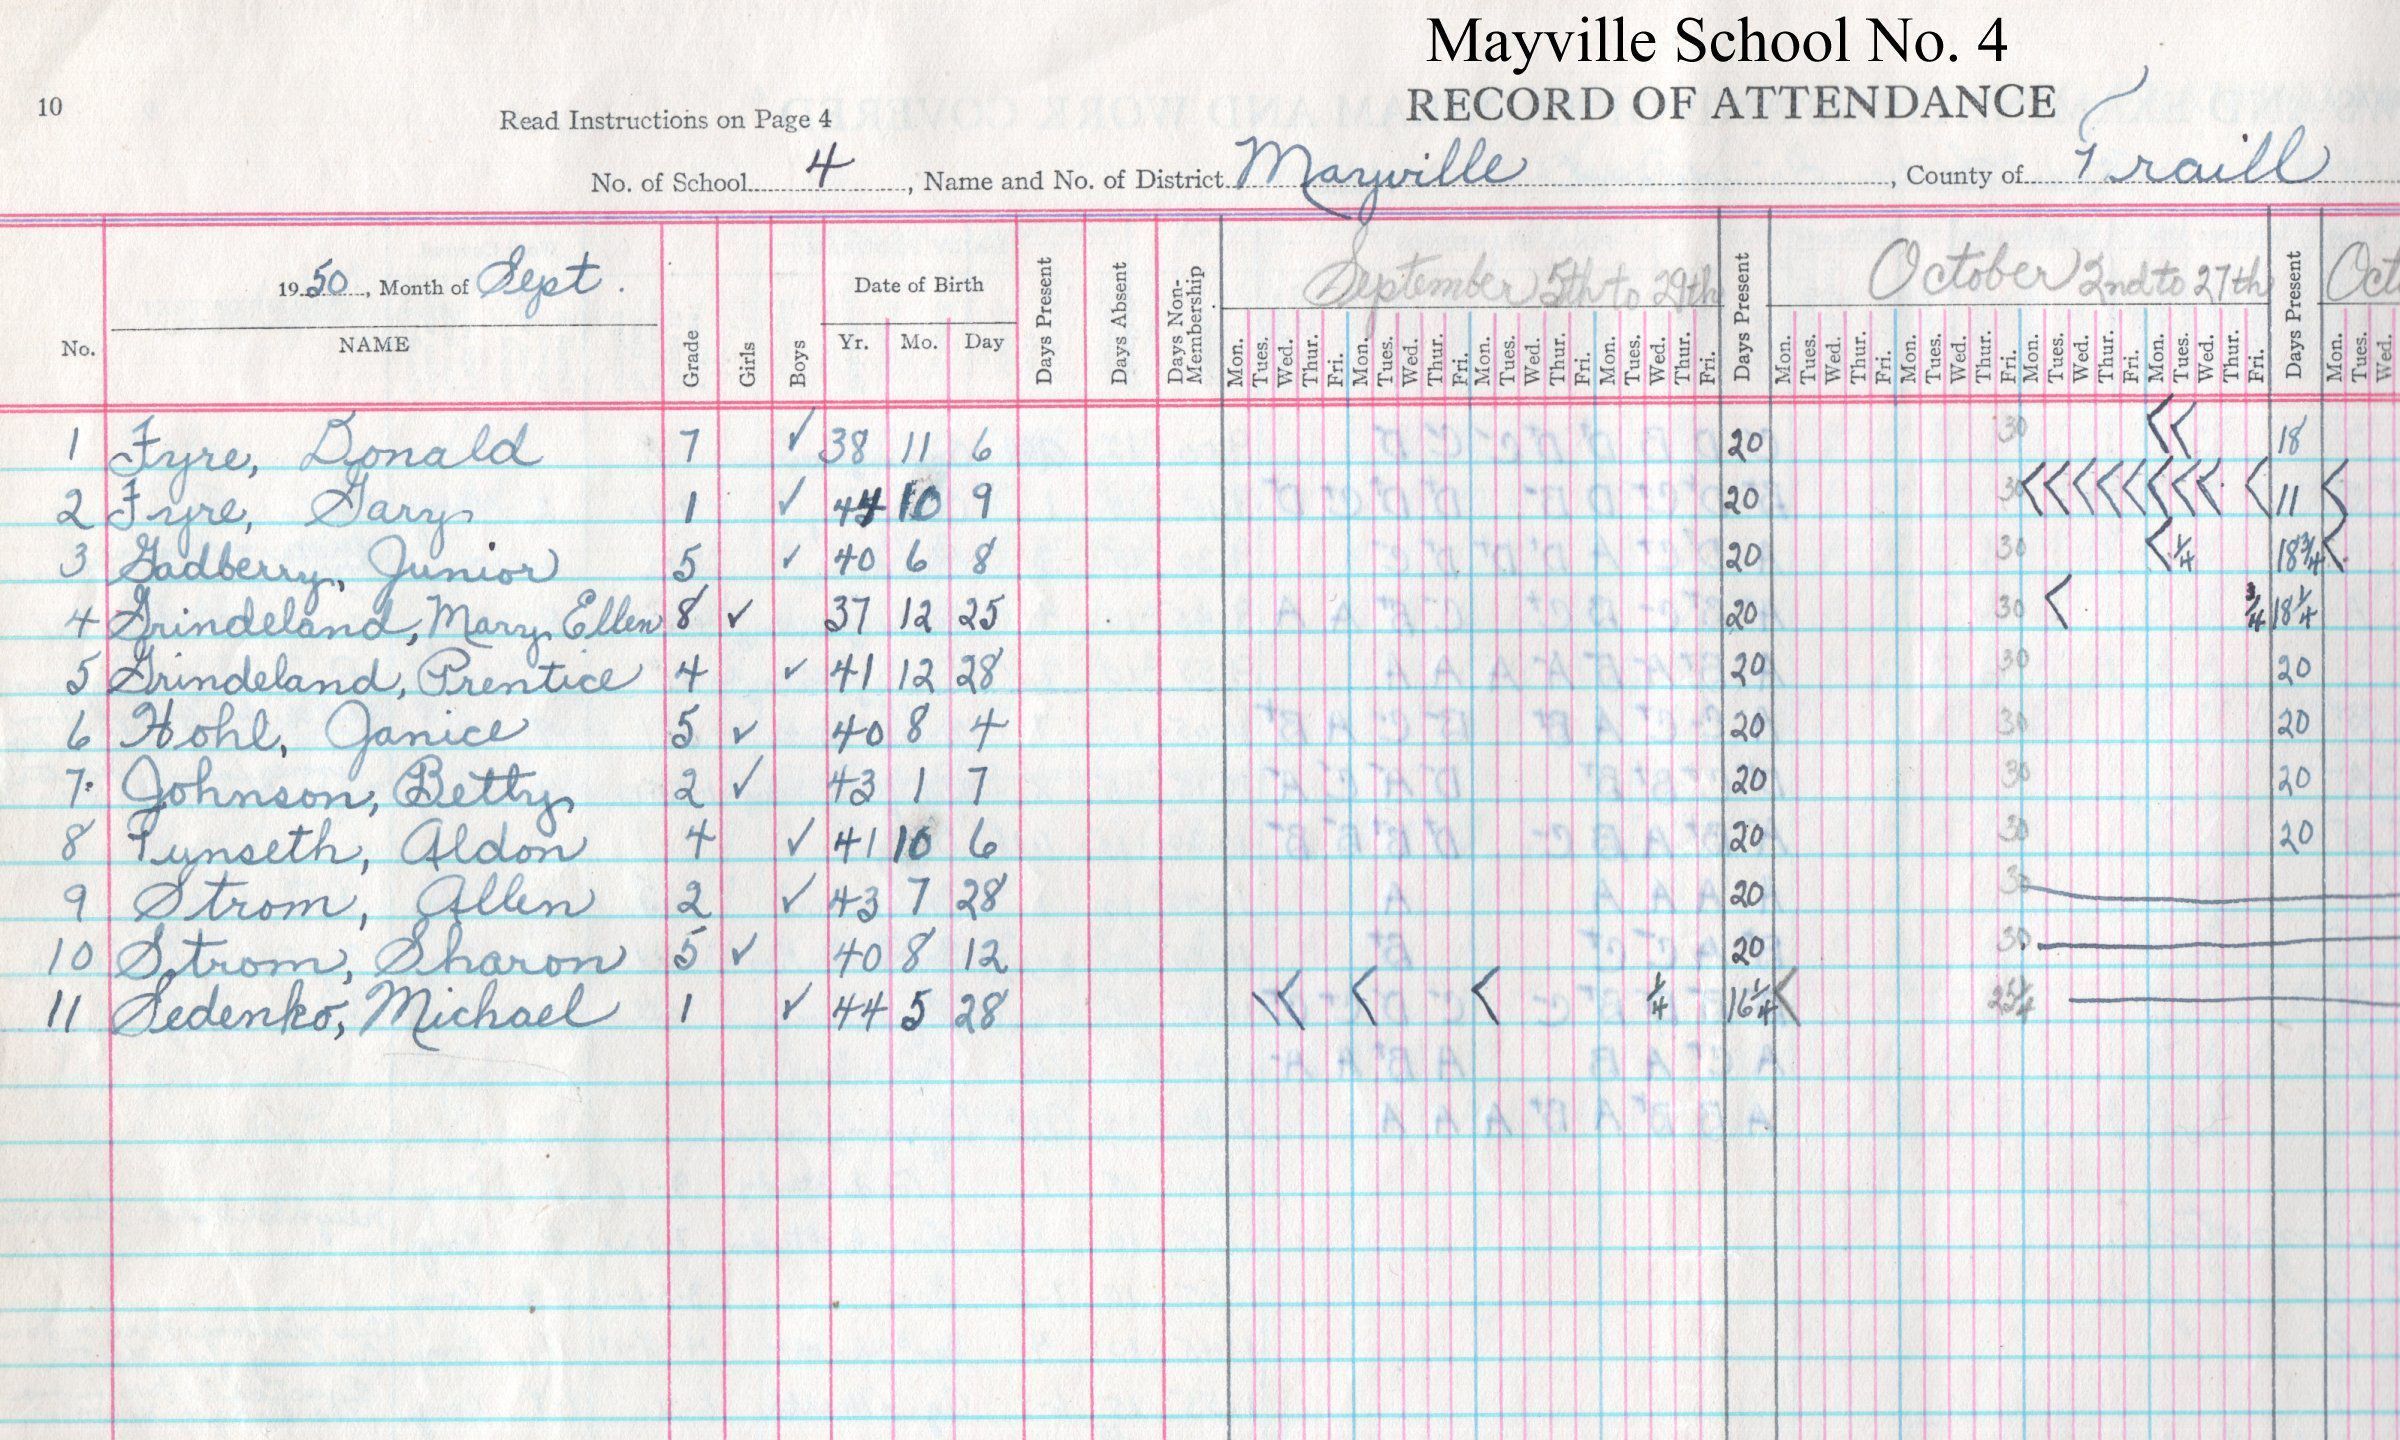 Mayville School No. 4
10 Read Instructions on Page 4 RECORD OF ATTENDANCE
No. of School 4, Name and No. of District Mayville, County of Traill
1950, Month of Sept.
September 5th to 29th
October 2nd to 27th
Oct
No. NAME Grade Girls Boys Date of Birth Yr. Mo. Day Days Present Days Absent Days Non-Membership Mon. Tues. Wed. Thur. Fri. Mon. Tues. Wed. Thur. Fri. Mon. Tues. Wed. Thur. Fri. Mon. Tues. Wed. Thur. Fri. Days Present Mon. Tues. Wed. Thur. Fri. Mon. Tues. Wed. Thur. Fri. Mon. Tues. Wed. Thur. Fri. Mon. Tues. Wed. Thur. Fri. Days Present Mon. Tues. Wed.
1 Fyre, Donald 7 ✓ 38 11 6 20 30 18
2 Fyre, Gary 1 ✓ 44 10 9 20 30 11
3 Gadberry, Junior 5 ✓ 40 6 8 20 30 1/4 18 3/4
4 Grindeland, Mary Ellen 8 ✓ 37 12 25 20 30 3/4 18 1/4
5 Grindeland, Prentice 4 ✓ 41 12 28 20 30 20
6 Hohl, Janice 5 ✓ 40 8 4 20 30 20
7. Johnson, Betty 2 ✓ 43 1 7 20 30 20
8 Tynseth, Aldon 4 ✓ 41 10 6 20 30 20
9 Strom, Allen 2 ✓ 43 7 28 20 30
10 Strom, Sharon 5 ✓ 40 8 12 20 30
11 Sedenko, Michael 1 ✓ 44 5 28 1/4 16 1/4 25 1/4